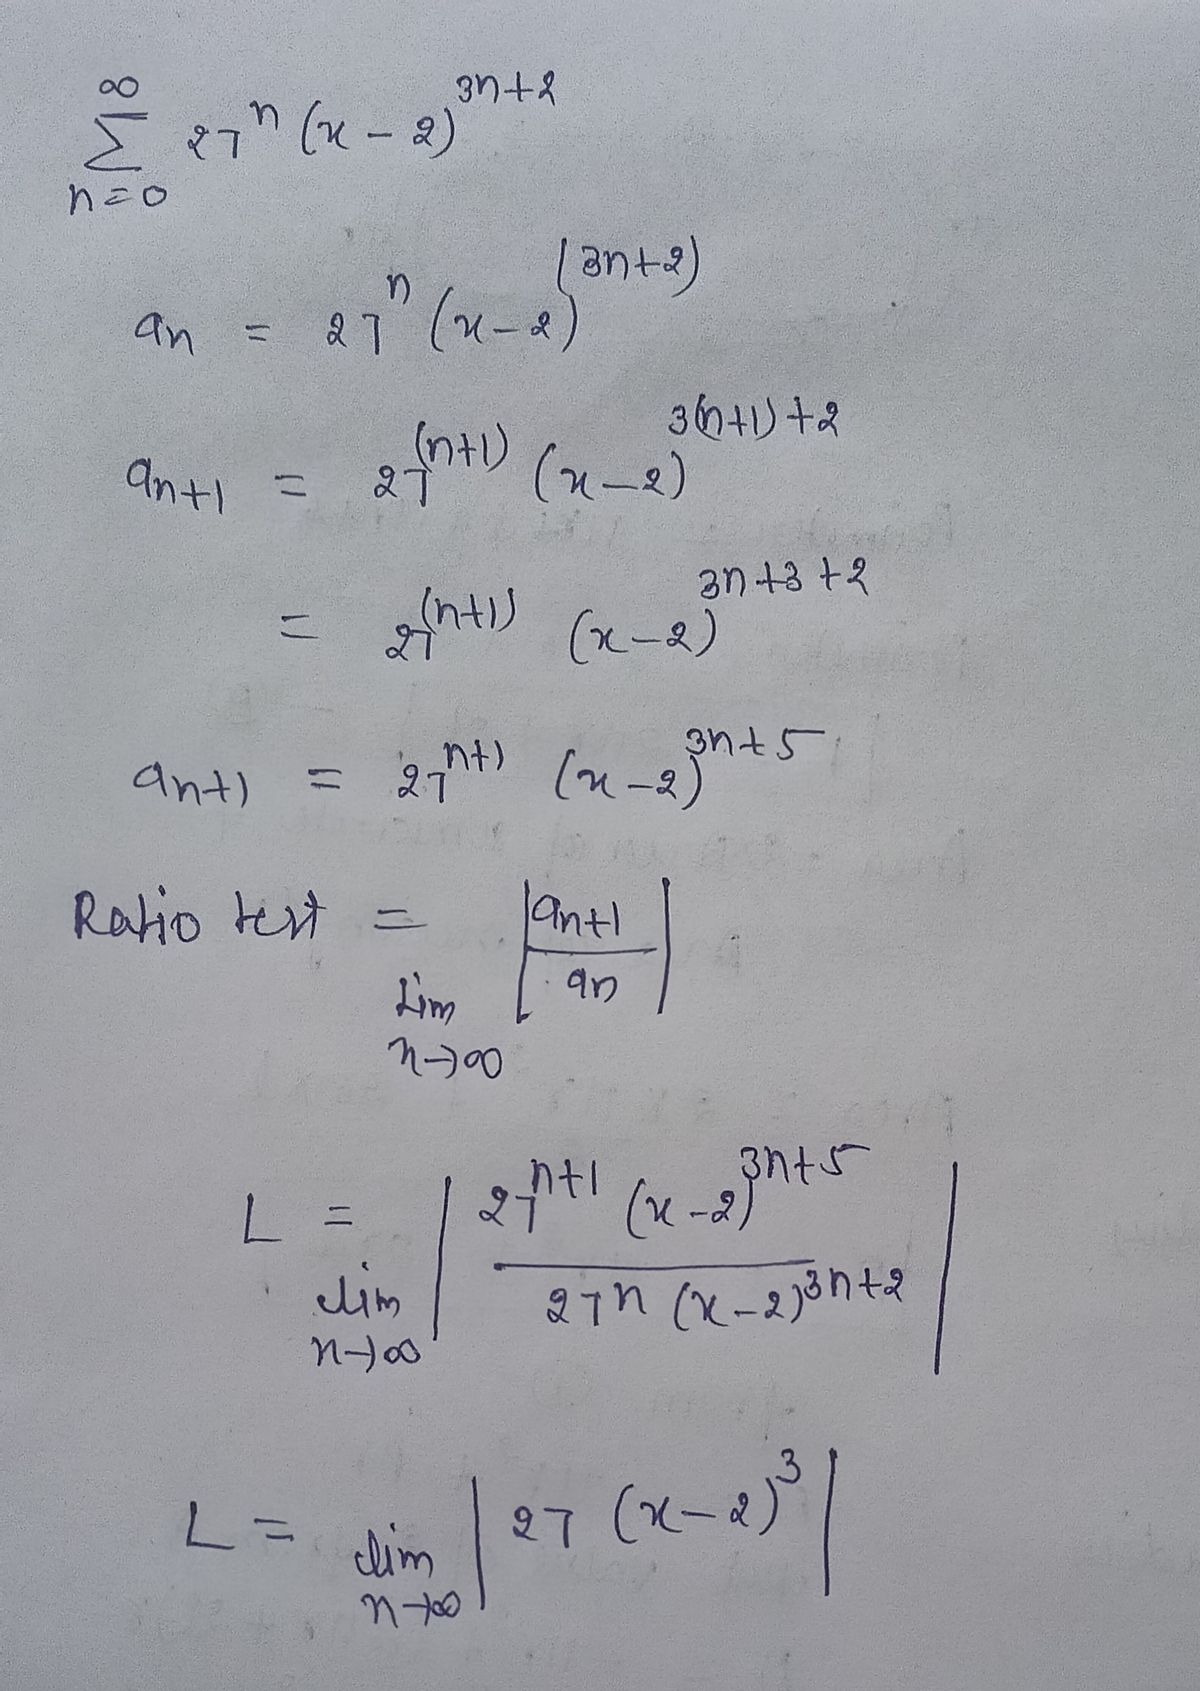 ∞
Σ 27^n (x - 2)^{3n+2}
n=0
a_n = 27^n (x-2)^{(3n+2)}
a_{n+1} = 27^{(n+1)} (x-2)^{3(n+1)+2}
= 27^{(n+1)} (x-2)^{3n+3+2}
a_{n+1} = 27^{n+1} (x-2)^{3n+5}
Ratio test = lim n→∞ |a_{n+1} / a_n|
L = lim n→∞ |27^{n+1} (x-2)^{3n+5} / 27^n (x-2)^{3n+2}|
L = lim n→∞ |27 (x-2)^3|